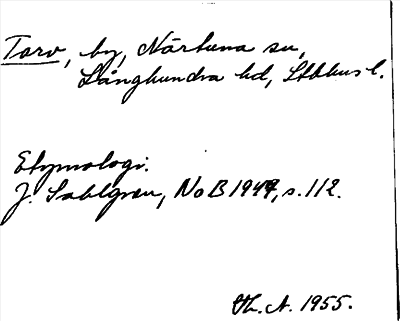 Tarv, by, Närtuna sn,
Långhundra hd, Sthlms l.
Etymologi.
J. Sahlgren, NoB 1947, s. 112.
Th. A. 1955.